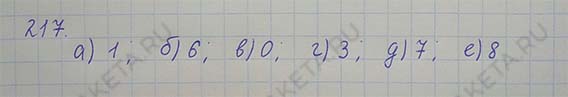 217.
а) 1; б) 6; в) 0; г) 3; д) 7; е) 8